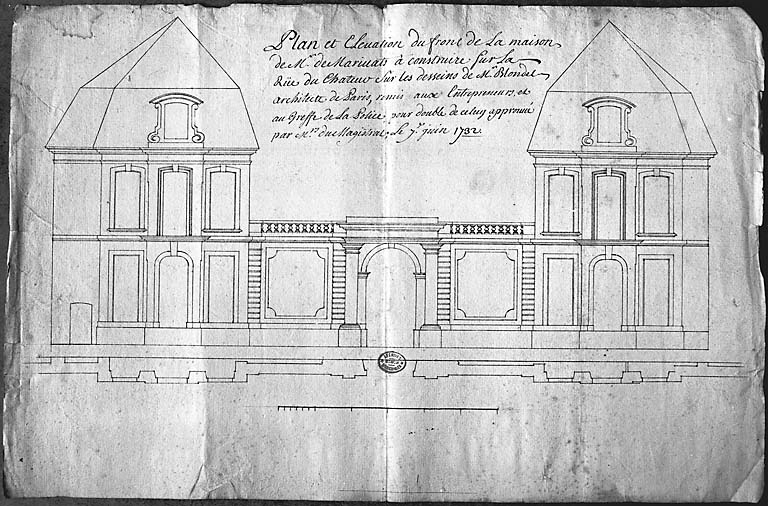 Plan et Elevation du front de La maison
de Mr. de Mariuats à construire sur La
Rüe du Chateur sur les desseins de Mr. Blondel
architecte de Paris, remis aux Entrepreneurs, et
au Greffe de La Police pour double de celuy approuué
par Mrs. du Magistrat, Le 7e. juin 1732.